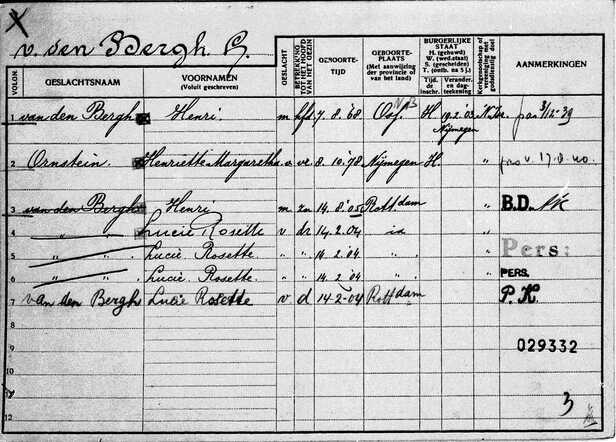 v. den Bergh, H.
VOLGN. GESLACHTSNAAM VOORNAMEN (Voluit geschreven) GESLACHT BETREKKING TOT HET HOOFD VAN HET GEZIN GEBOORTE-TIJD GEBOORTE-PLAATS (Met aanwijzing der provincie of van het land) BURGERLIJKE STAAT H. (gehuwd) W. (wed.staat) S. (gescheiden) T. (ontb. na 5 j.) Tijd. de inschr. Verander. en dag-teekening Kerkgenootschap of vereeniging met godsdienstig doel AANMERKINGEN
1 van den Bergh Henri m hfd 7.8.'68 Oss. N.B. H. 19.2.'03 Nijmegen
2 Ornstein. Henriette Margaretha v. 8.10.'78 Nijmegen H. "
3 van den Bergh Henri m zn 14.8.'05 Rottdam " B.D.
4 " " Lucie Rosette v dr 14.2.'04 id "
5 " " Lucie Rosette. " " 14.2.'04 " " Pers:
6 " " Lucie Rosette. " " 14.2.'04 " " PERS.
7 van den Bergh Lucie Rosette v d 14-2-04 Rottdam P.K.
8
9 029332
10
11 3
12